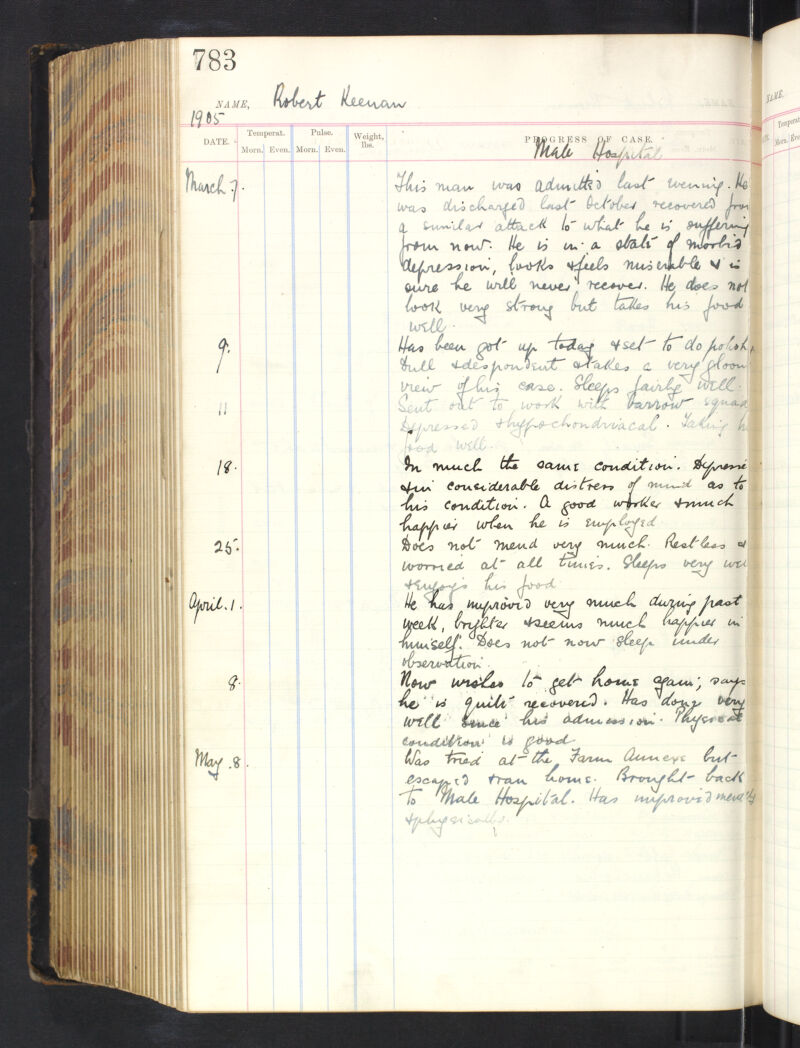 783
NAME, Robert Keenan
1905
DATE. Temperat. Pulse. Weight, lbs. PROGRESS OF CASE.
Morn. Even. Morn. Even.
Male Hospital
March 7. This man was admitted last evening. He
was discharged last October recovered from
a similar attack to what he is suffering
from now. He is in a state of morbid
depression, looks & feels miserable & is
sure he will never recover. He does not
look very strong but takes his food
well.
9. Has been got up today & set to do polish
Dull & despondent & takes a very gloom
view of his case. Sleeps fairly well.
11 Sent out to work with barrow squad
Depressed & hypochondriacal. Taking h
food well.
18. In much the same condition. Depresse
& in considerable distress of mind as to
his condition. A good worker & much
happier when he is employed
25. Does not mend very much. Restless &
worried at all times. Sleeps very wel
& enjoys his food
April. 1. He has improved very much during past
week, brighter & seems much happier in
himself. Does not now sleep under
observation.
8. Now wishes to get home again; says
he is quite recovered. Has done very
well since his admission. Physical
condition is good
May. 8. Was tried at the Farm Annexe but
escaped & ran home. Brought back
to Male Hospital. Has improved mentally
& physically.
NAME,
Temperat
Morn. Eve